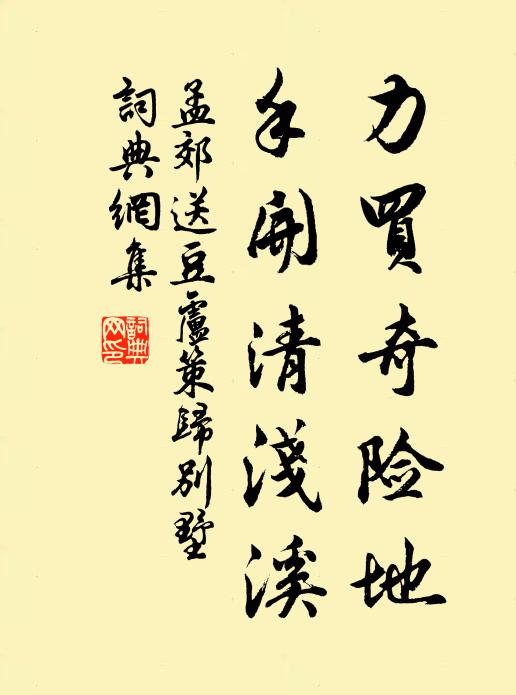 力買奇险地
手開清淺溪
孟郊送豆盧策歸別墅
詞典網集
詞典網印